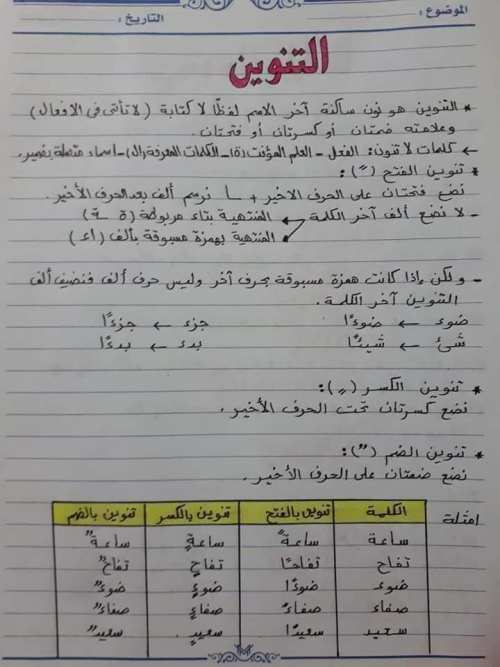 الموضوع :
التاريخ :
التنوين
* التنوين هو نون ساكنة آخر الاسم لفظًا لا كتابة (لا تأتي في الأفعال)
وعلامته ضمتان أو كسرتان أو فتحتان.
- كلمات لا تنون: الفعل - العلم المؤنث (ة) - الكلمات المعرفة (ال) - أسماء متصلة بضمير.
* تنوين الفتح (ً):
نضع فتحتان على الحرف الاخير + ـا نرسم ألف بعد الحرف الأخير.
- لا نضع ألف آخر الكلمة ← المنتهية بتاء مربوطة (ة ـة)
المنتهية بهمزة مسبوقة بألف (اء)
- ولكن ماذا كانت همزة مسبوقة بحرف آخر وليس حرف ألف فنضيف ألف
التنوين آخر الكلمة.
ضوء ← ضوءًا جزء ← جزءًا
شئ ← شيئًا بدء ← بدءًا
* تنوين الكسر (ٍ):
نضع كسرتان تحت الحرف الأخير.
* تنوين الضم (ٌ):
نضع ضمتان على الحرف الأخير.
امثلة
الكلمة تنوين بالفتح تنوين بالكسر تنوين بالضم
ساعة ساعةً ساعةٍ ساعةٌ
تفاح تفاحًا تفاحٍ تفاحٌ
ضوء ضوءًا ضوءٍ ضوءٌ
صفاء صفاءً صفاءٍ صفاءٌ
سعيد سعيدًا سعيدٍ سعيدٌ